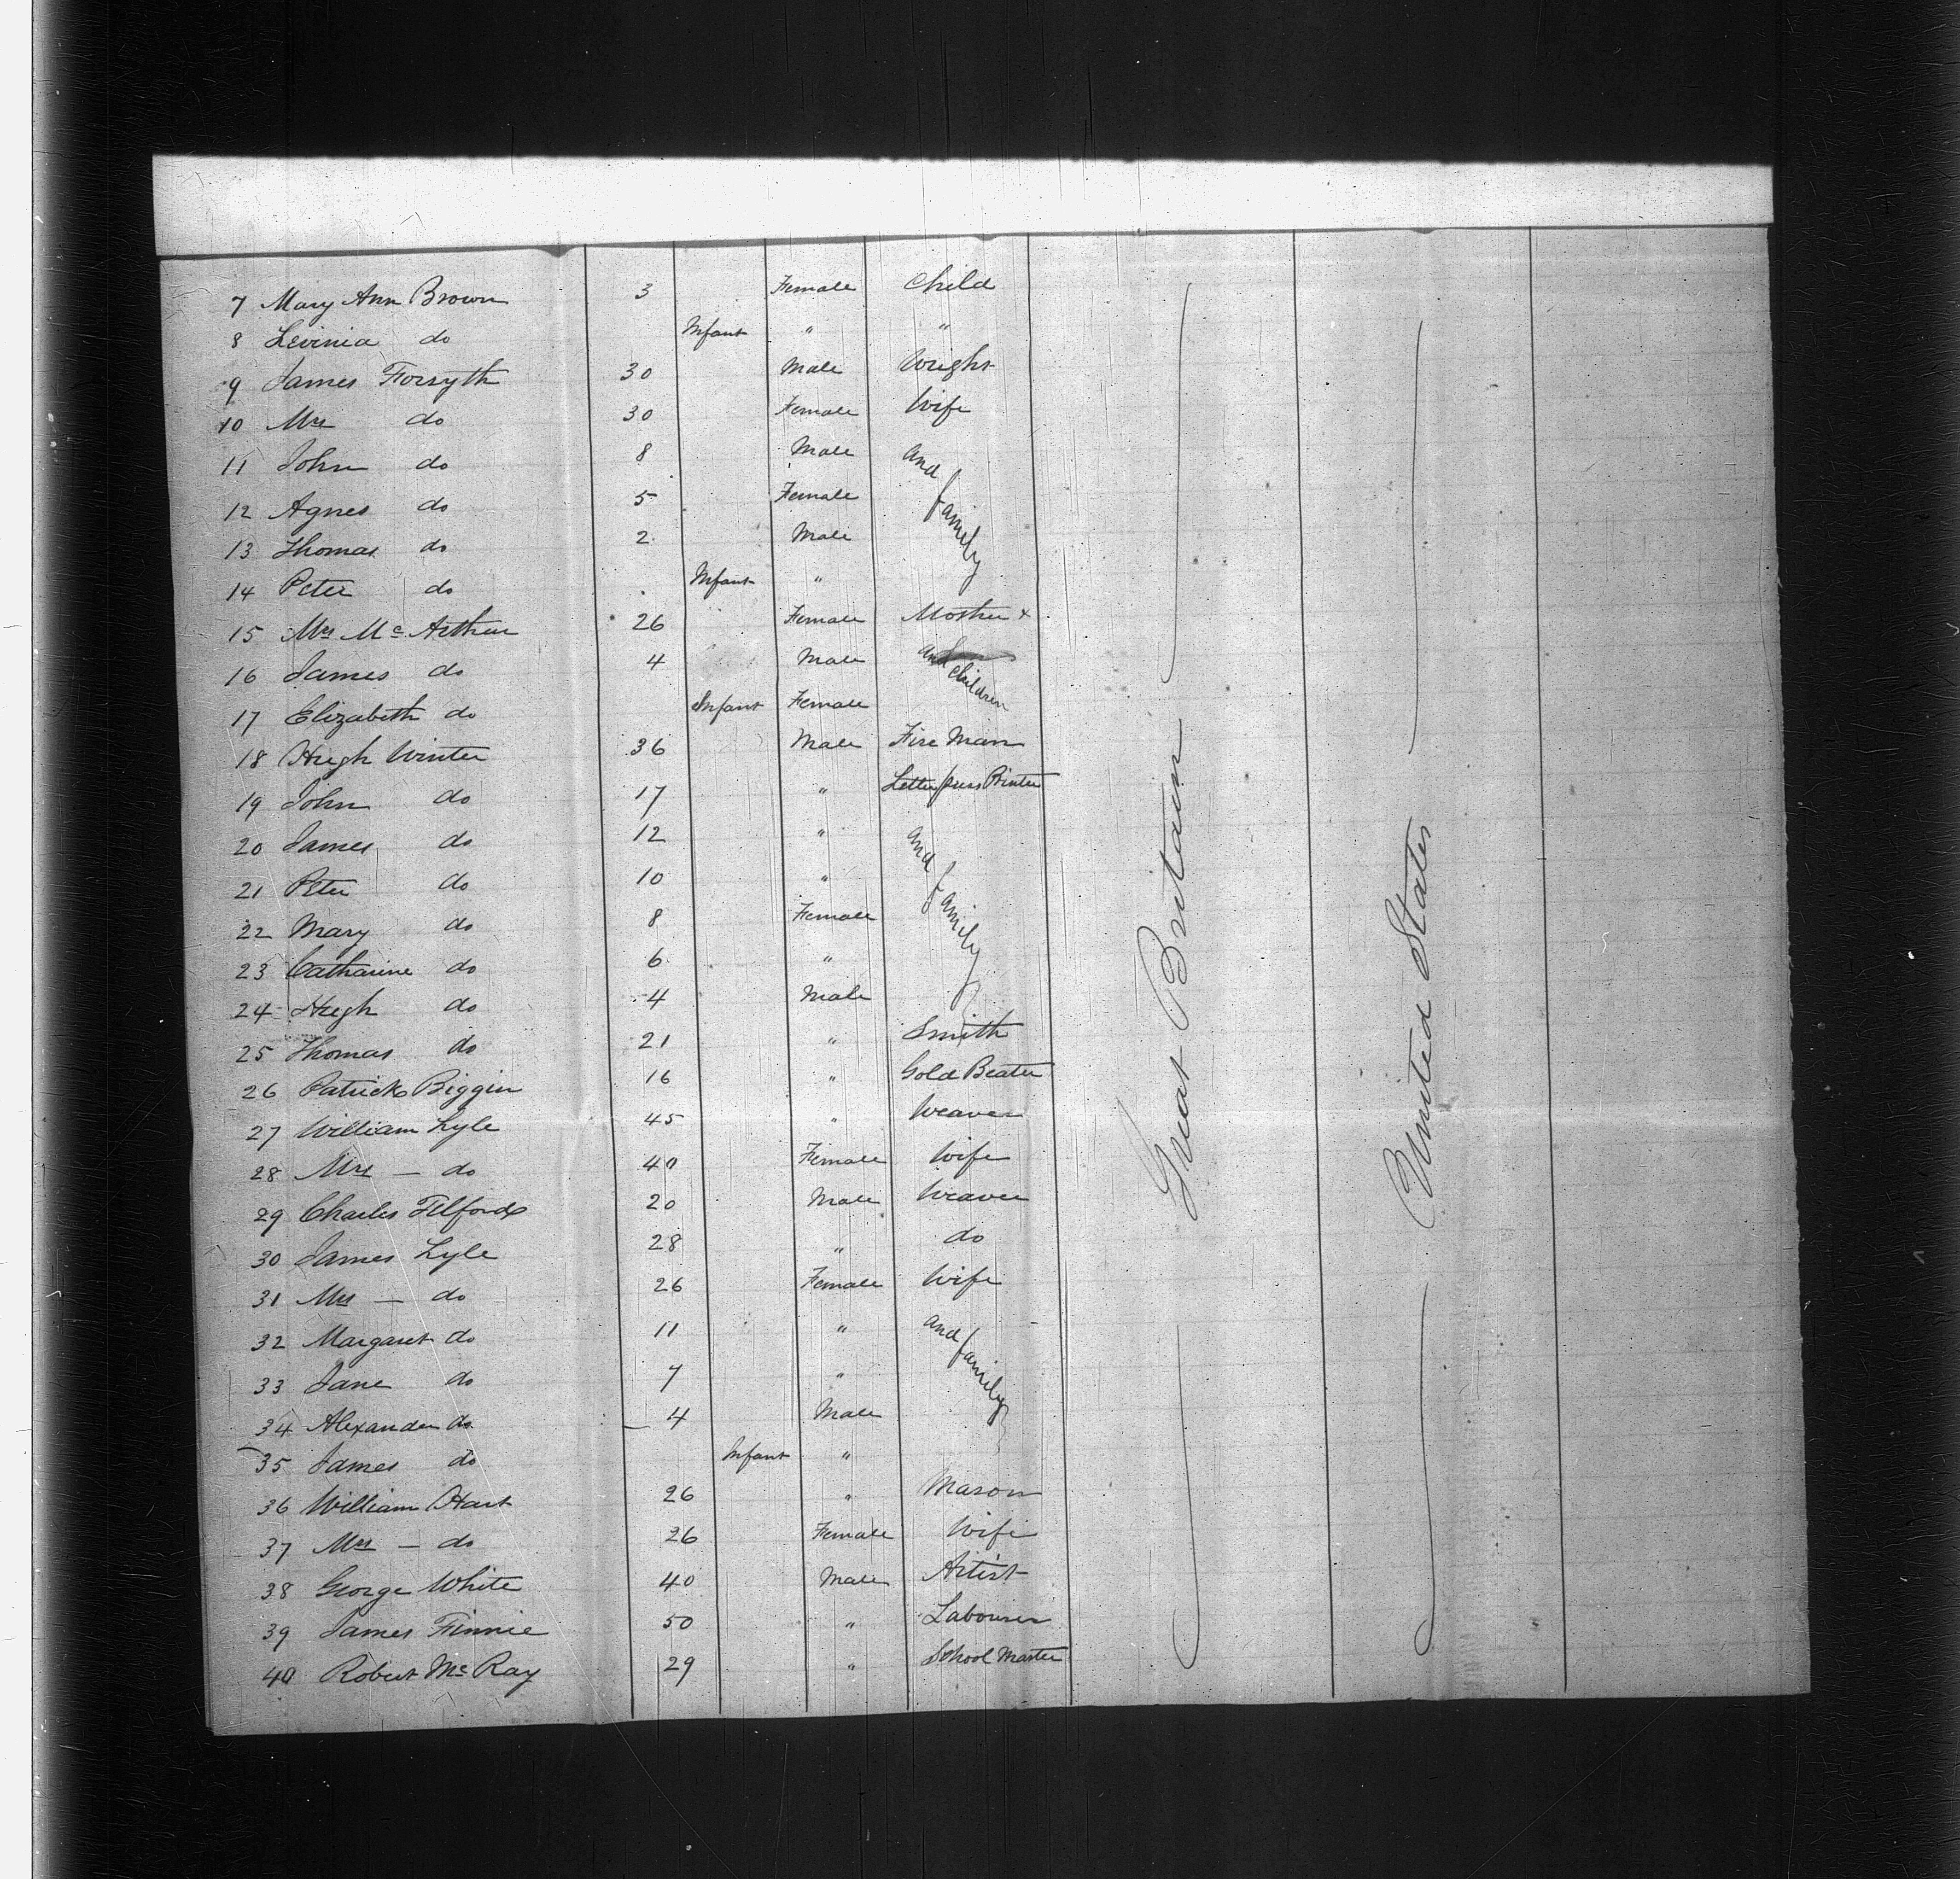 7 Mary Ann Brown 3 Female Child
8 Levinia do Infant " "
9 James Forsyth 30 Male Wright
10 Mrs do 30 Female Wife
11 John do 8 Male and
12 Agnes do 5 Female family
13 Thomas do 2 Male
14 Peter do Infant "
15 Mrs McArthur 26 Female Mother &
16 James do 4 Male and children
17 Elizabeth do Infant Female
18 Hugh Winter 36 Male Fire Man
19 John do 17 " Letter press Printer
20 James do 12 " and
21 Peter do 10 " family
22 Mary do 8 Female
23 Catharine do 6 "
24 Hugh do 4 Male
25 Thomas do 21 " Smith
26 Patrick Biggin 16 " Gold Beater
27 William Lyle 45 " Weaver
28 Mrs — do 40 Female Wife
29 Charles Telford 20 Male Weaver
30 James Lyle 28 " do
31 Mrs — do 26 Female Wife
32 Margaret do 11 " and
33 Jane do 7 " family
34 Alexander do 4 Male
35 James do Infant "
36 William Hart 26 " Mason
37 Mrs — do 26 Female Wife
38 George White 40 Male Artist
39 James Finnie 50 " Labourer
40 Robert McRay 29 " School Master
Great Britain
United States